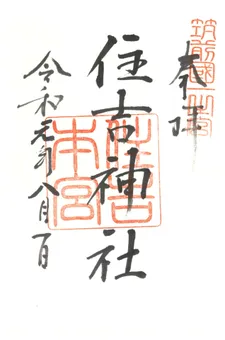 奉拝
筑前國一之宮
住吉神社
住吉本宮
令和元年八月一日